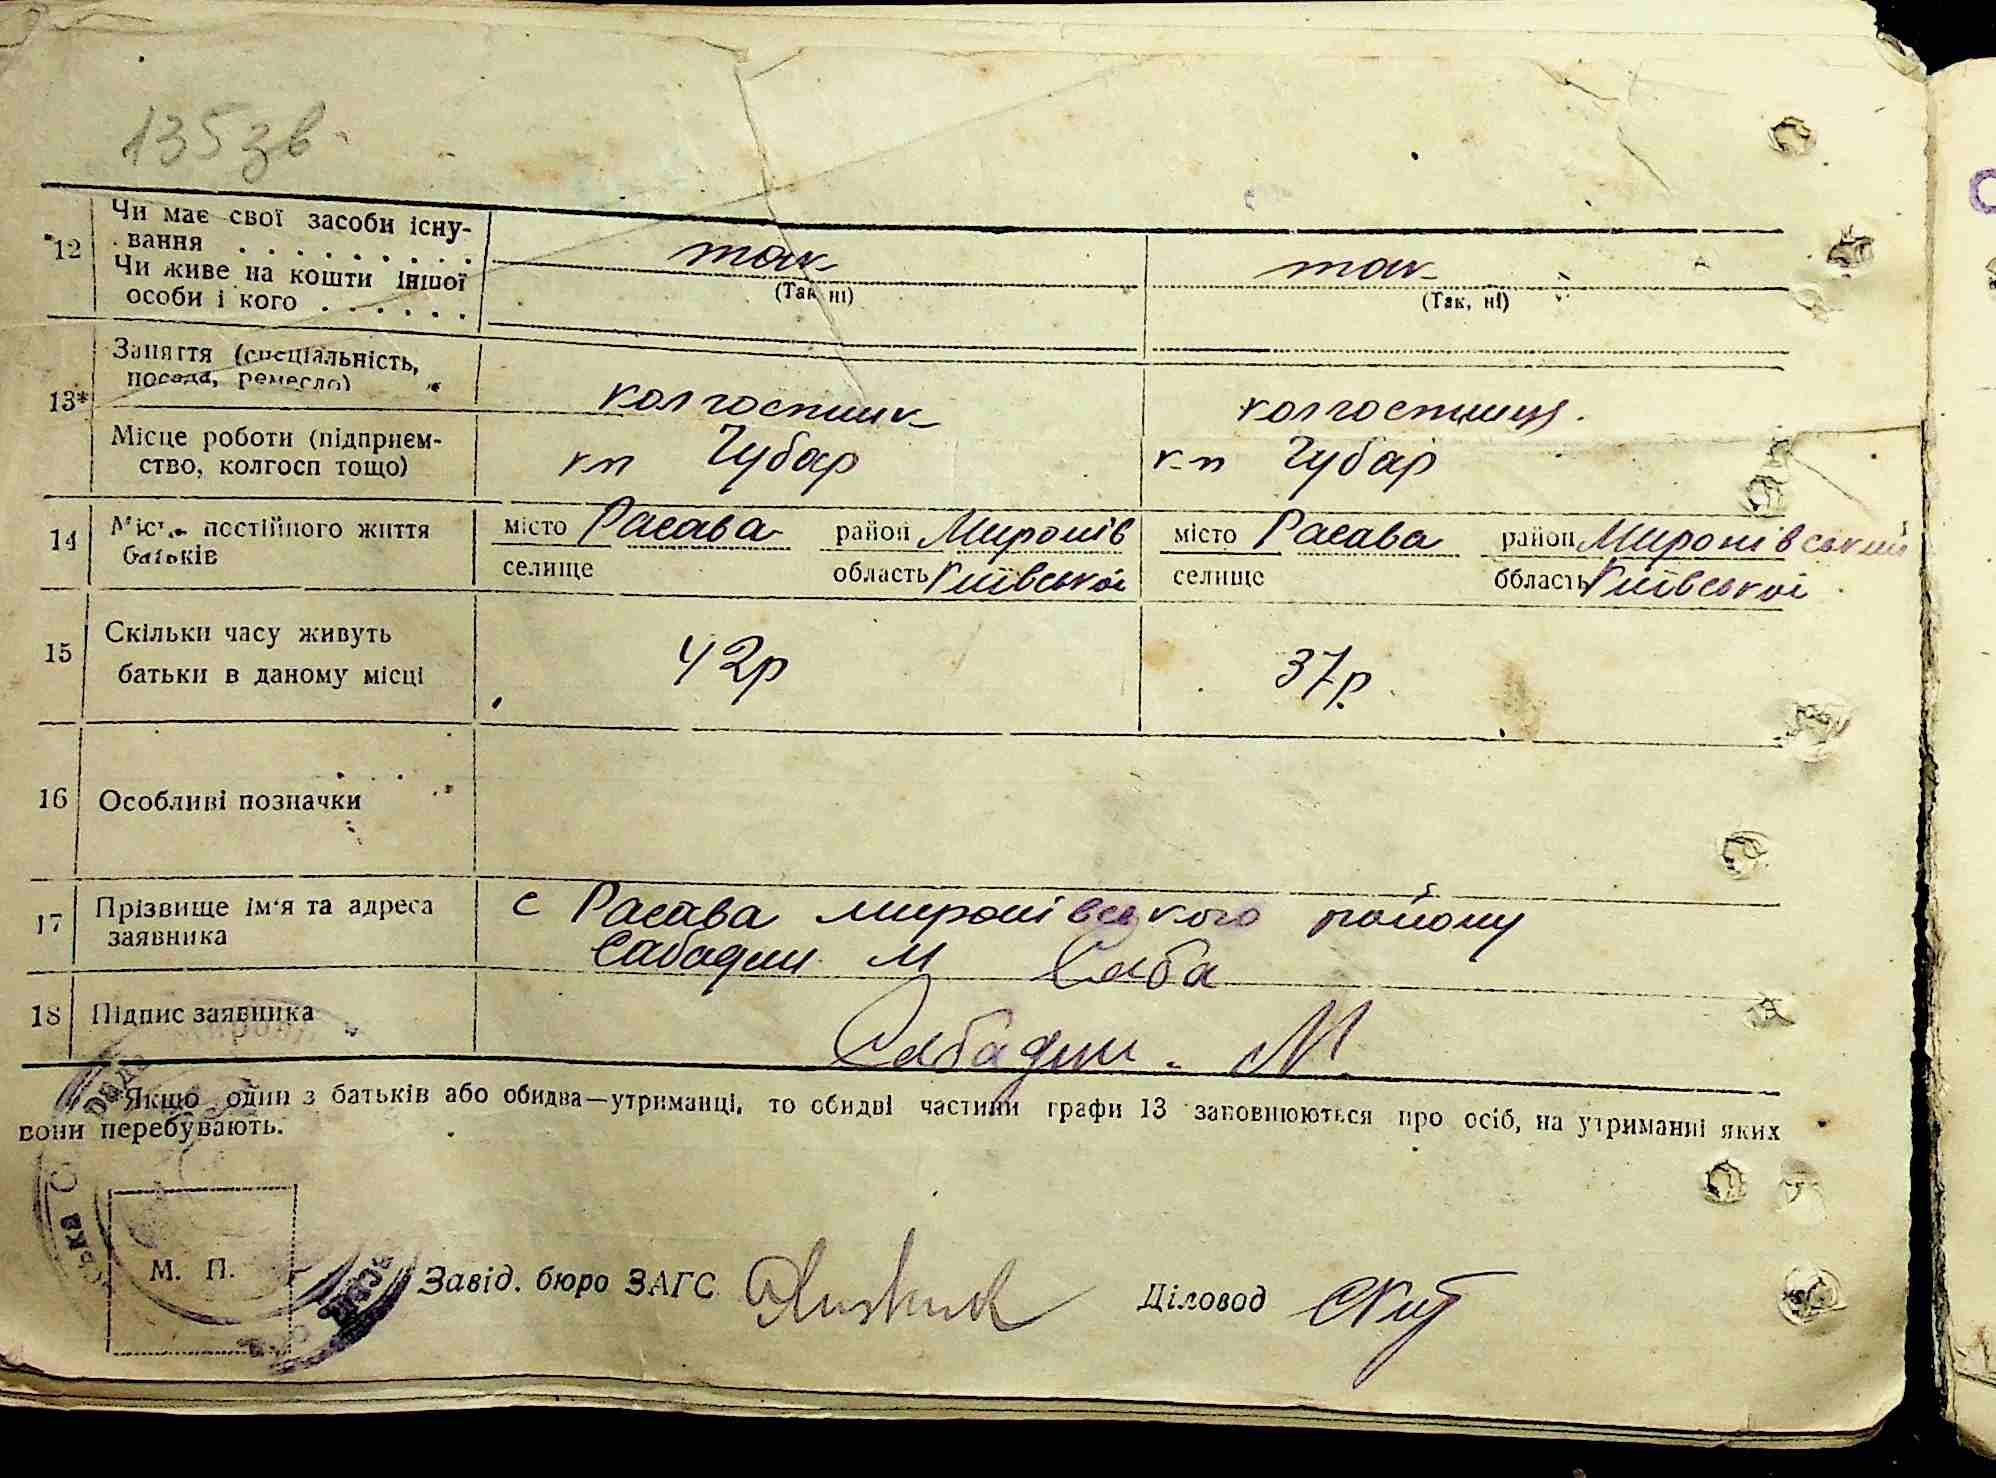 135зв.
12 Чи має свої засоби існу-
вання
так
так
(Так, ні)
(Так, ні)
Чи живе на кошти іншої
особи і кого
13* Заняття (спеціальність,
посада, ремесло)
колгоспник
колгоспниця.
Місце роботи (підприєм-
ство, колгосп тощо)
к-п Чубар
к-п Чубар
14 Місце постійного життя
батьків
місто Расава район Миронів
селище область Київської
місто Расава район Миронівський
селище область Київської
15 Скільки часу живуть
батьки в даному місці
42р
37р.
16 Особливі позначки
17 Прізвище ім'я та адреса
заявника
с Расава миронівського району
Сабадин М Саба
18 Підпис заявника
Сабадин. М.
Якщо один з батьків або обидва—утриманці, то обидві частини графи 13 заповнюються про осіб, на утриманні яких
вони перебувають.
М. П.
Завід. бюро ЗАГС
Діловод